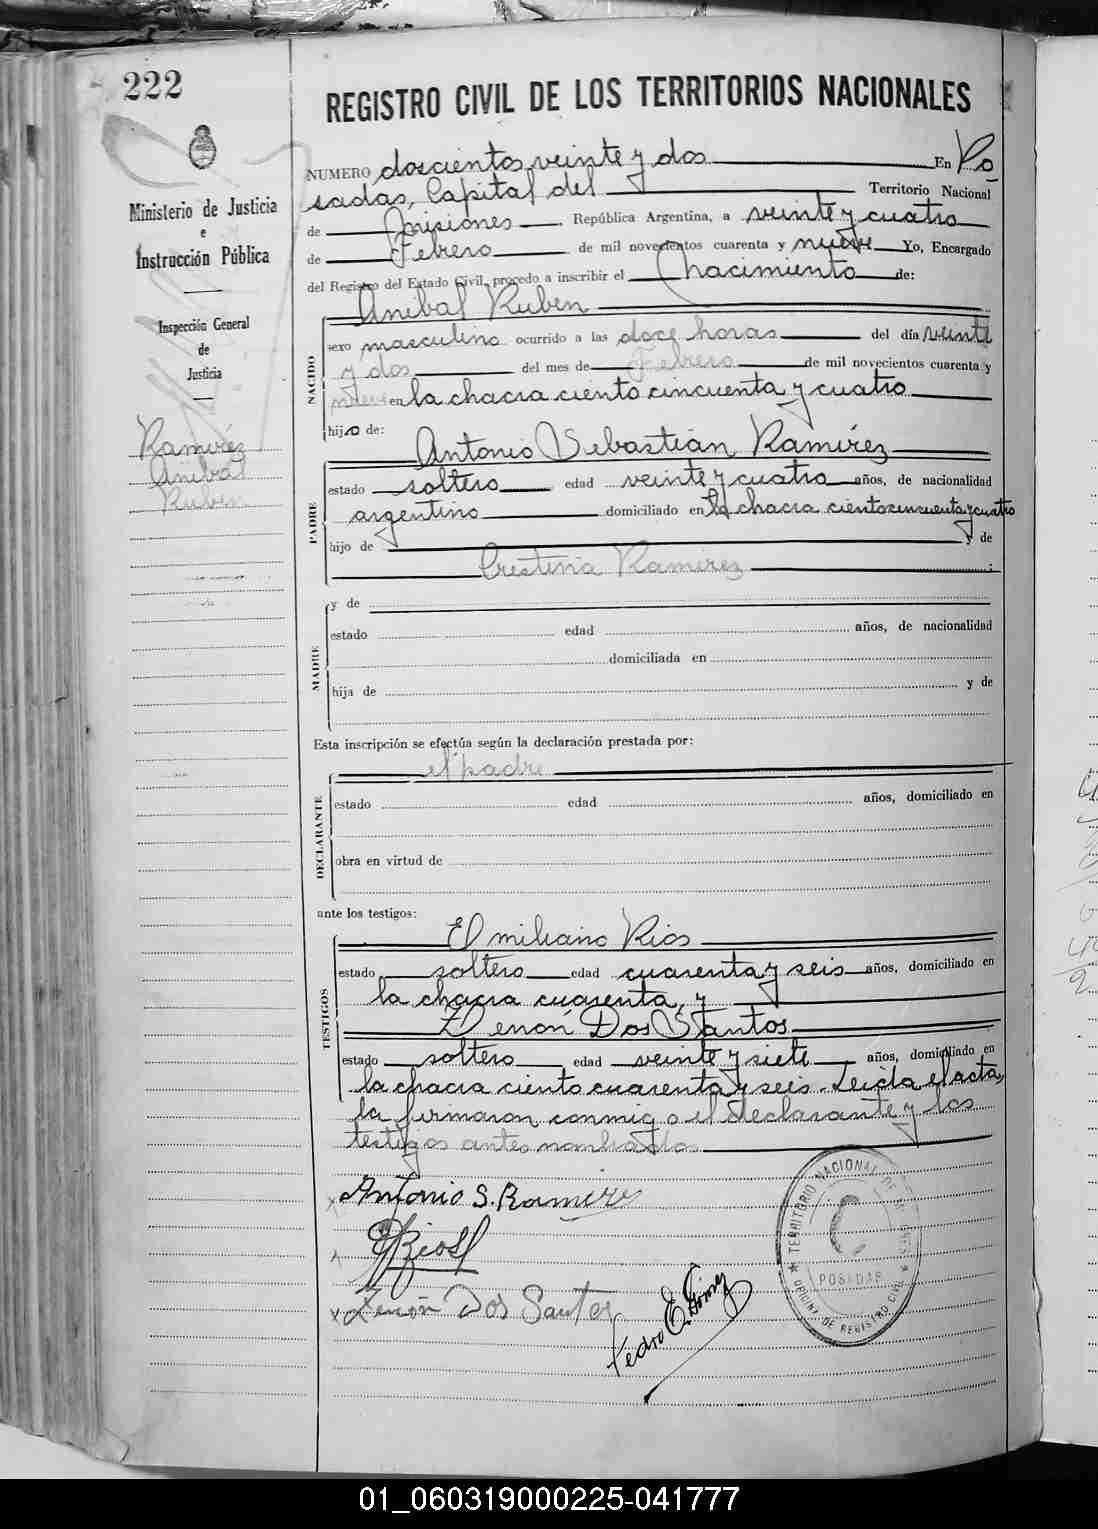 222
REGISTRO CIVIL DE LOS TERRITORIOS NACIONALES
Ministerio de Justicia
e
Instrucción Pública
Inspección General
de
Justicia
Ramírez
Anibal
Ruben
NUMERO doscientos veinte y dos En Po
sadas, Capital del Territorio Nacional
de Misiones República Argentina, a veinte y cuatro
de Febrero de mil novecientos cuarenta y nueve Yo, Encargado
del Registro del Estado Civil, procedo a inscribir el Nacimiento de:
NACIDO
Anibal Ruben
sexo masculino ocurrido a las doce horas del día veinte
y dos del mes de Febrero de mil novecientos cuarenta y
nueve en la chacra ciento cincuenta y cuatro
hijo de:
PADRE
Antonio Sebastian Ramírez
estado soltero edad veinte y cuatro años, de nacionalidad
argentino domiciliado en la chacra ciento cincuenta y cuatro
hijo de y de
Crestina Ramirez
MADRE
y de
estado edad años, de nacionalidad
domiciliada en
hija de y de
Esta inscripción se efectúa según la declaración prestada por:
DECLARANTE
el padre
estado edad años, domiciliado en
obra en virtud de
ante los testigos:
TESTIGOS
Emiliano Rios
estado soltero edad cuarenta y seis años, domiciliado en
la chacra cuarenta, y
Zenón Dos Santos
estado soltero edad veinte y siete años, domiciliado en
la chacra ciento cuarenta y seis. Leida el acta,
la firmaron conmigo el declarante y los
testigos antes nombrados
Antonio S. Ramirez
E Rios
Zenón Dos Santos
Pedro E. Gómez
TERRITORIO NACIONAL DE MISIONES
POSADAS
OFICINA DE REGISTRO CIVIL
01_060319000225-041777